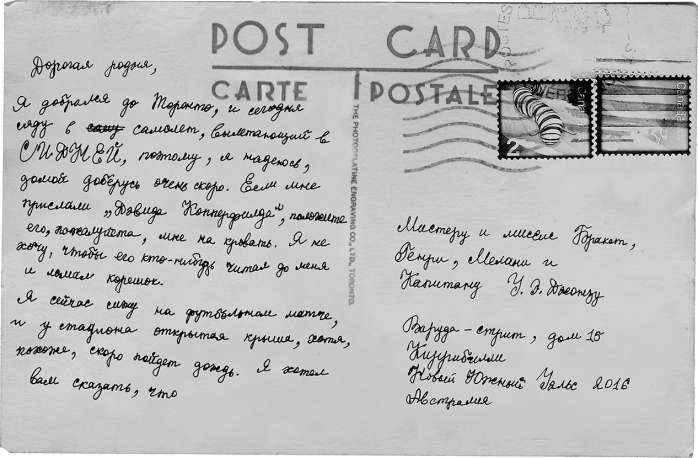 POST CARD
CARTE POSTALE
THE PHOTOGELATINE ENGRAVING CO., LTD., TORONTO.
Дорогая родня,
Я добрался до Торонто, и сегодня
сяду в самолет, вылетающий в
СИДНЕЙ, поэтому, я надеюсь,
домой доберусь очень скоро. Если мне
прислали „Дэвида Копперфилда", положите
его, пожалуйста, мне на кровать. Я не
хочу, чтобы его кто-нибудь читал до меня
и ломал корешок.
Я сейчас сижу на футбольном матче,
и у стадиона открытая крыша, хотя,
похоже, скоро пойдет дождь. Я хотел
вам сказать, что
Canada
Мистеру и миссис Бракет,
Генри, Мелани и
Капитану У. Э. Джонзу
Варуда-стрит, дом 15
Кирибилли
Новый Южный Уэльс 2016
Австралия